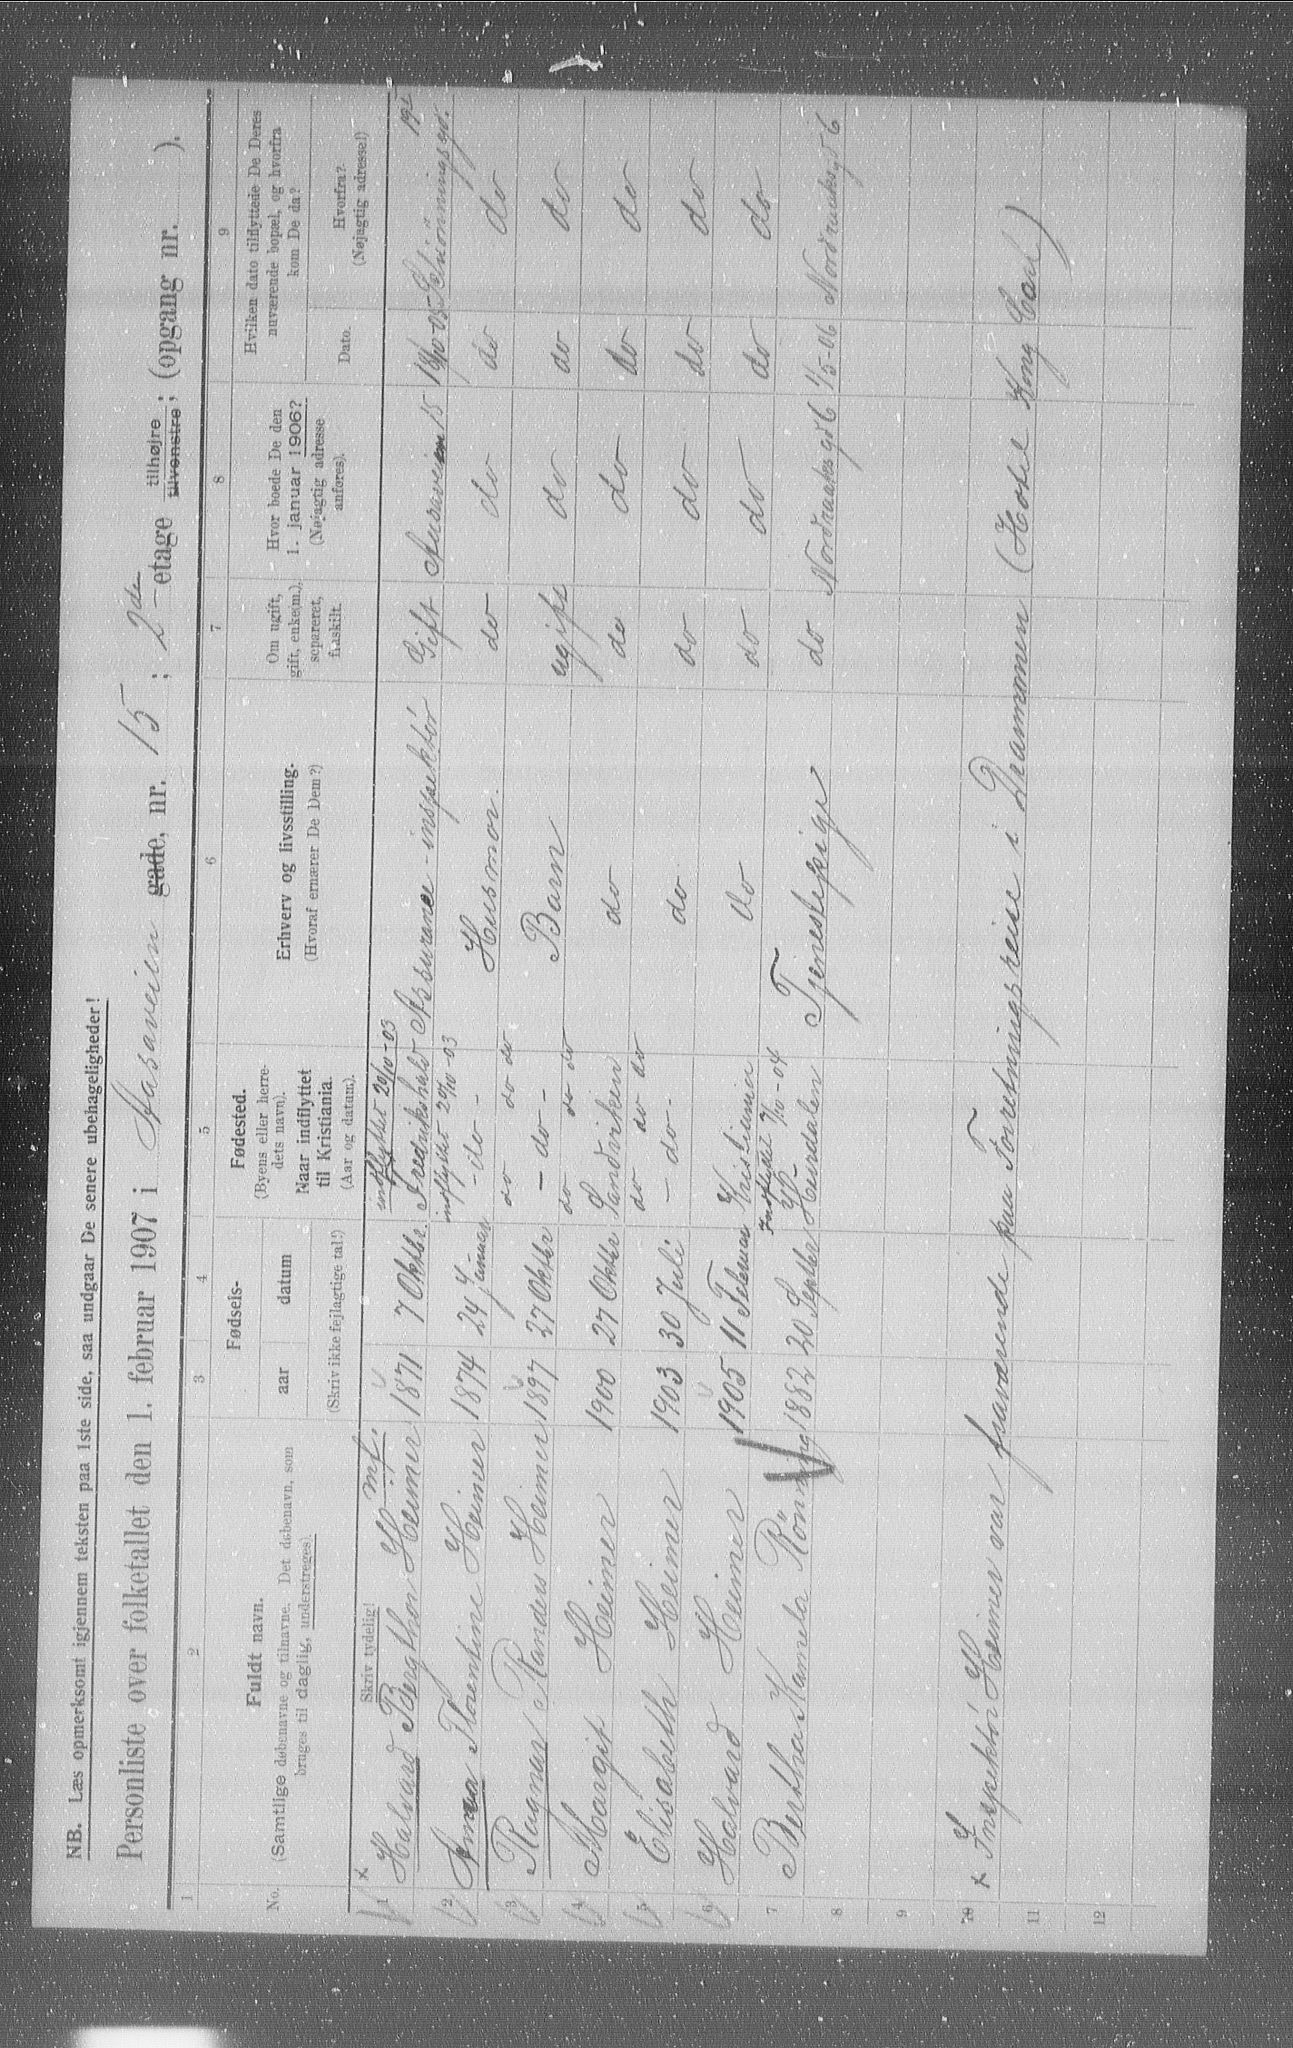 NB. Læs opmerksomt igjennem teksten paa 1ste side, saa undgaar De senere ubehageligheder!
Personliste over folketallet den 1. februar 1907 i Aasaveien gade, nr. 15 ; 2de etage tilhøjre tilvenstre; (opgang nr. ).
1 2 3 4 5 6 7 8 9
No.
Fuldt navn.
(Samtlige døbenavne og tilnavne. Det døbenavn, som
bruges til daglig, understreges).
Fødsels-
aar datum
(Skriv ikke fejlagtige tal!)
Fødested.
(Byens eller herre-
dets navn).
Naar indflyttet
til Kristiania.
(Aar og datum).
Erhverv og livsstilling.
(Hvoraf ernærer De Dem?)
Om ugift,
gift, enke(m.),
separeret,
fraskilt.
Hvor boede De den
1. januar 1906?
(Nøjagtig adresse
anføres).
Hvilken dato tilflyttede De Deres
nuværende bopæl, og hvorfra
kom De da?
Dato. Hvorfra?
(Nøjagtig adresse!)
Skriv tydelig! mf. indflyttet 20/10-03
1 Halvard Bergthor Heimer 1871 7 Oktbr. Fredrikshald Assurance-inspektör Gift Aasaveien 15 /10-05 Schönningsgd. 19
indflyttet 20/10-03
2 Florentine Heimer 1874 24 Januar -do- Husmor. do do do do
do do do
3 Ragnar Randers Heimer 1897 27 Oktbr -do- Barn ugift do do do
do do do
4 Margit Heimer 1900 27 Oktbr Sandviken do do do do do
do do do
5 Elisabeth Heimer 1903 30 Juli -do- do do do do do
6 Halvard Heimer 1905 11 Februar Kristiania do do do do do
Indflyttet /10-04
7 Bertha Kamela Rönning 1882 20 Septbr Hurdalen Tjenestepige do Nordraaksgd 6 1/5-06 Nordraaksgd 6
8
9
10 x Inspektör Heimer var fraværende paa Forretningsreise i Drammen (Hotel Kong Carl)
11
12